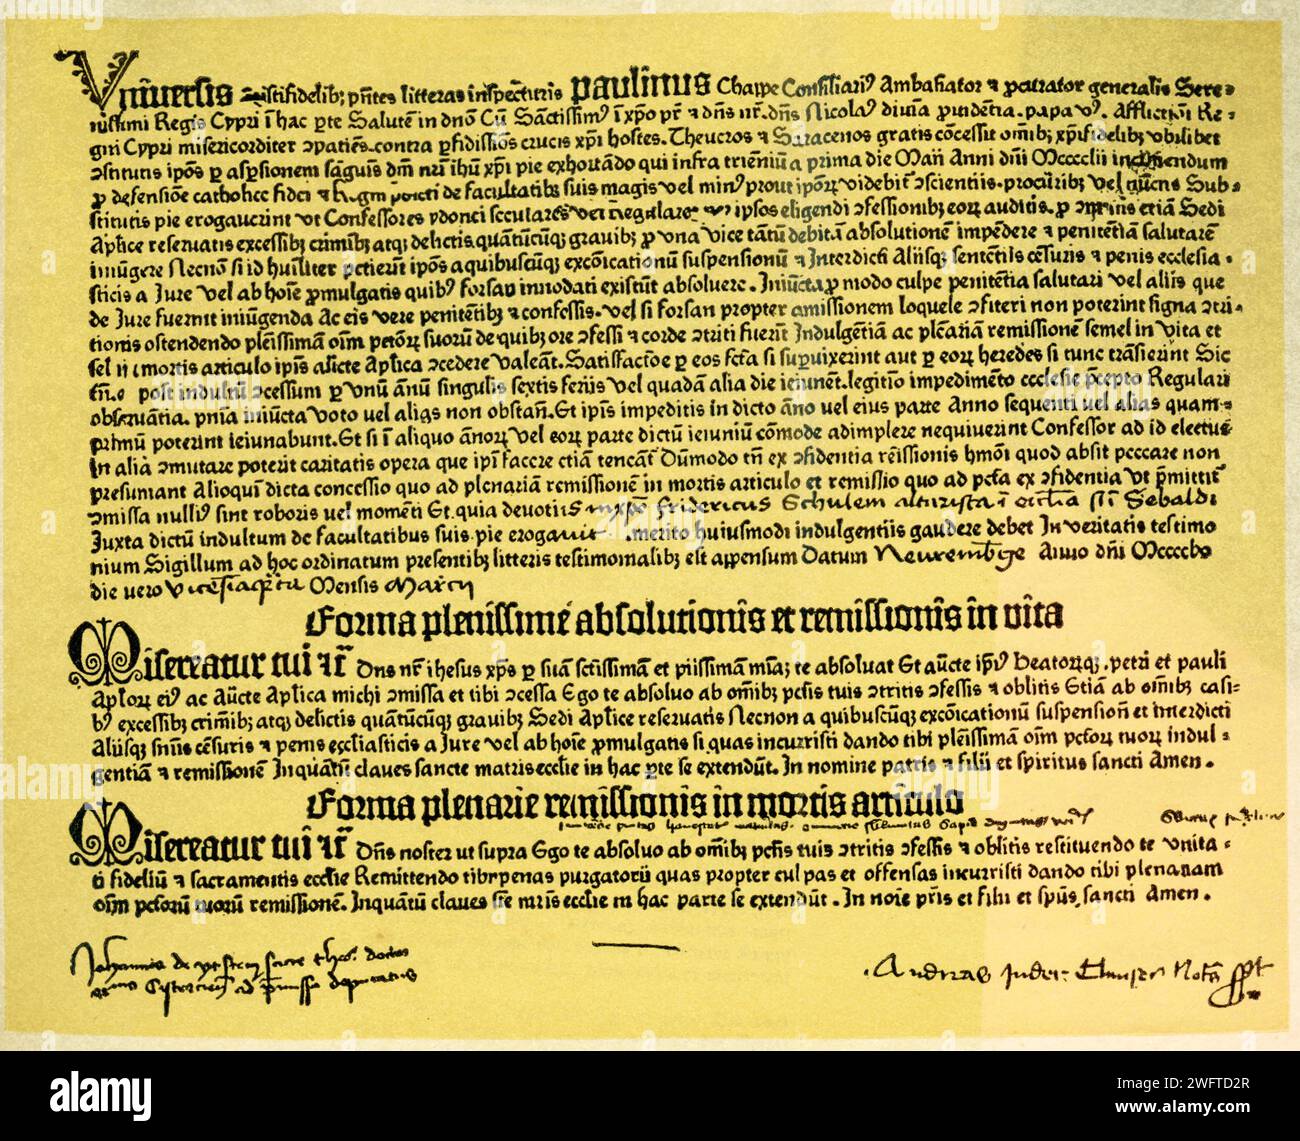 Vniuersis Cristifidelibꝫ p̄ntes litteras inspecturis paulinus Chappe Consiliariꝰ Ambasiator ⁊ ꝓcurator generalis Sere-
nissimi Regis Cypri ī hac ꝑte Salutē in dn̄o Cū Sāctissimꝰ ī xp̄o pr̄ ⁊ dn̄s nr̄. dn̄s Nicolaꝰ diuīa ꝓuidētia. papa vꝰ. Afflictiōi Re-
gni Cypri misericorditer ɔpatiēs. contra ꝑfidissiōs crucis xp̄i hostes. Theucros ⁊ Saracenos gratis cōcessit om̄ibꝫ xp̄ifidelibꝫ vbilibet
ɔstitutis ip̄os ꝑ aspersionem sāguīs dn̄i nr̄i ihū xp̄i pie exhortādo qui infra trienniū a prima die Maii Anni dn̄i Mcccclii incipiendum
ꝓ defensiōe catholice fidei ⁊ Regni de facultatibꝫ suis magis vel minꝰ prout ip̄oꝝ videbit̄ ɔscientiis. procuribꝫ vel Sub-
stitutis pie erogauerint vt Confessores ydonei seculares vel Regulares ip̄sos eligendi ɔfessionibꝫ eoꝝ auditis. ꝓ etiā Sedi
Aplice reseruatis excessibꝫ crimībꝫ atqꝫ delictis quātūcūqꝫ grauibꝫ ꝓ vna vice tātū debitā absolutionē impēdere ⁊ penitētiā salutarē
iniūgere Necnō si id hūiliter petierūt ip̄os a quibuscūqꝫ excōicationū suspensionū ⁊ Interdicti Aliisqꝫ sentētiis cēsuris ⁊ penis ecclesia-
sticis a Jure vel ab hoīe ꝓmulgatis quibꝰ forsan innodati existūt absoluere. Iniūcta ꝓ modo culpe penitētia salutari vel aliis que
de Jure fuerīt iniūgenda Ac eis vere penitētibꝫ ⁊ confessis. vel si forsan propter amissionem loquele ɔfiteri non poterint signa ɔtri-
tionis ostendendo plēissimā oīm pctōꝝ suoꝝ de quibꝫ ore ɔfessi ⁊ corde ɔtriti fuerīt Indulgētiā ac plēariā remissionē semel in vita et
sel in mortis articulo ip̄is aūcte Aplica ɔcedere valeāt. Satisfactōe ꝑ eos fcta si suꝑuixerint aut ꝑ eoꝝ heredes si tunc trāsierint Sic
tn̄ post indultū ɔcessum ꝑ vnū ānū singulis sextis feriis vel quadā alia die ieiunēt. legitīo impedimēto ecclesie pcepto Regulari
obseruātia. pnīa iniūcta voto vel alias non obstāt̄. Et ip̄is impeditis in dicto āno vel eius parte Anno sequenti vel alias quam-
primū poterint ieiunabunt. Et si ī aliquo ānoꝝ vel eoꝝ parte dictū ieiuniū cōmode adimplere nequiuerint Confessor ad id electus
in alia ɔmutare poterit caritatis opera que ip̄i facere etiā teneāt̄ Dūmodo tn̄ ex ɔfidentia rēissionis hmōi quod absit peccare non
presumant Alioqui dicta concessio quo ad plenariā remissionē in mortis articulo et remissio quo ad pctā ex ɔfidentia vt p̄mittit̄
ɔmissa nulliꝰ sint roboris vel momēti Et quia deuotus in xp̄o fridericus Schulem altarista ī ecclīa scī Sebaldi
Juxta dictū indultum de facultatibus suis pie erogauit .merito huiusmodi indulgentiis gaudere debet In veritatis testimo
nium Sigillum ad hoc ordinatum presentibꝫ litteris testimonialibꝫ est appensum Datum Neurembge Anno dn̄i Mccccliiii
die vero Mensis Marcii
Forma plenissime absolutionis et remissionis in vita
Misereatur tui ⁊c̄ Dn̄s nr̄ ihesus xp̄s ꝑ suā sctissimā et piissimā mīaꝫ te absoluat Et aūcte ip̄iꝰ beatorūqꝫ. petri et pauli
Aplōꝝ eiꝰ ac aūcte Aplica michi ɔmissa et tibi ɔcessa Ego te absoluo ab om̄ibꝫ pctis tuis ɔtritis ɔfessis ⁊ oblitis Etiā ab om̄ibꝫ casi-
bꝰ excessibꝫ crimībꝫ atqꝫ delictis quātūcūqꝫ grauibꝫ Sedi Aplice reseruatis Necnon a quibuscūqꝫ excōicationū suspension̄ et interdicti
Aliisqꝫ sniīs cēsuris ⁊ penis eccliasticis a Jure vel ab hoīe ꝓmulgatis si quas incurristi dando tibi plēissimā oīm pctōꝝ tuoꝝ indul-
gentiā ⁊ remissionē Inquātū claues sancte matris ecclīe in hac ꝑte se extendūt. In nomine patris ⁊ filii et spiritus sancti Amen.
Forma plenarie remissionis in mortis articulo
Misereatur tui ⁊c̄ Dn̄s noster ut supra Ego te absoluo ab om̄ibꝫ pctis tuis ɔtritis ɔfessis ⁊ oblitis restituendo te vnita-
ti fideliū ⁊ sacramentis ecclīe Remittendo tibi penas purgatorii quas propter culpas et offensas incurristi dando tibi plenariam
oīm pctōrū tuorū remissionē. Inquātū claues sc̄e mr̄is ecclīe in hac parte se extendūt. In noīe pr̄is et filii et spūs sancti Amen.
Johannes de
Andreas Notā
alamy
Image ID: 2WFTD2R
www.alamy.com